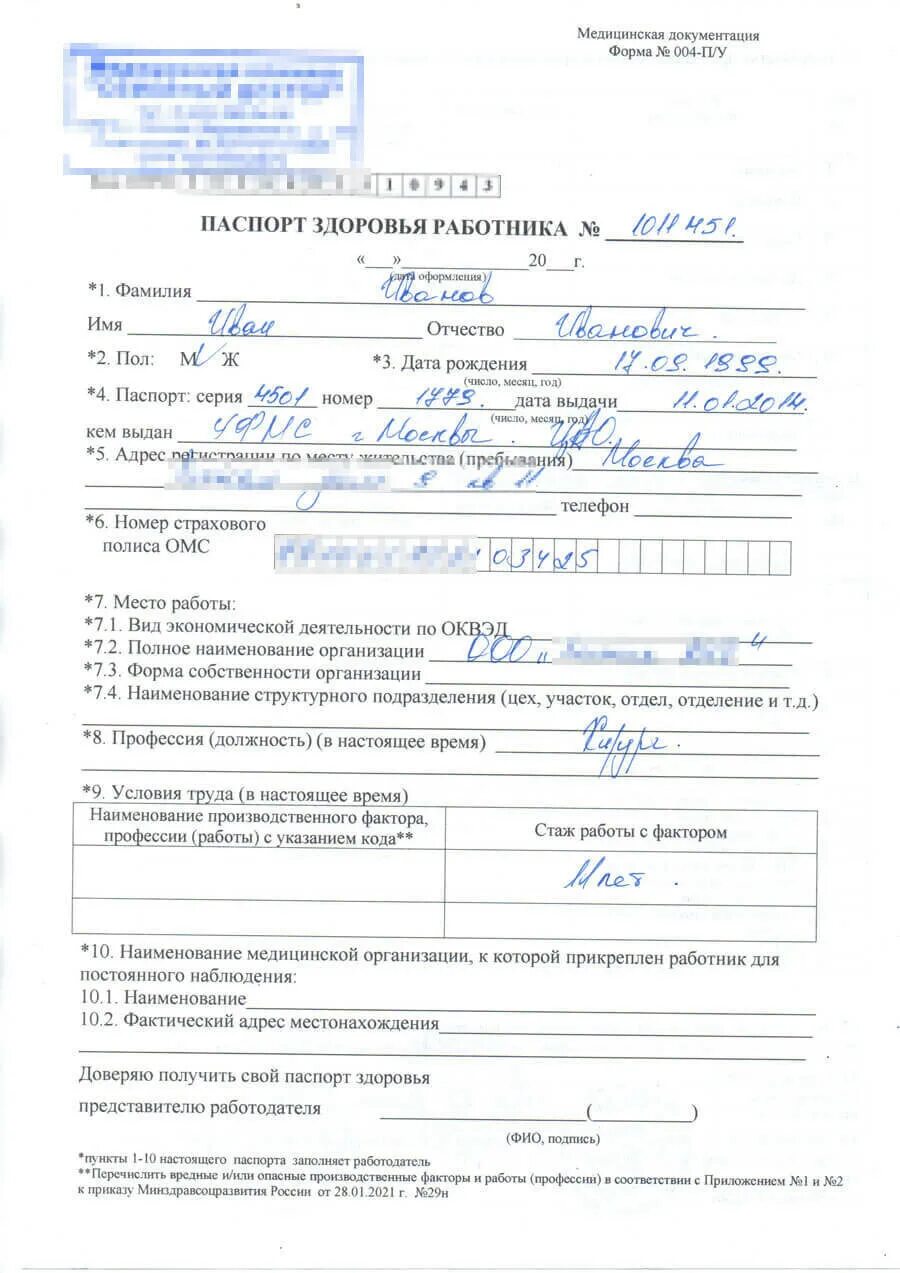 Медицинская документация
Форма № 004-П/У
1 0 9 4 3
ПАСПОРТ ЗДОРОВЬЯ РАБОТНИКА № 1011451.
«___»____________20___г.
(дата оформления)
*1. Фамилия Иванов
Имя Иван Отчество Иванович.
*2. Пол: М V Ж *3. Дата рождения 17.09.1999.
(число, месяц, год)
*4. Паспорт: серия 4501 номер 1779. дата выдачи 11.01.2014.
(число, месяц, год)
кем выдан УФМС г Москвы. ЦАО.
*5. Адрес регистрации по месту жительства (пребывания) Москва
9 кв 11.
телефон
*6. Номер страхового
полиса ОМС 03425
*7. Место работы:
*7.1. Вид экономической деятельности по ОКВЭД
*7.2. Полное наименование организации ООО „ "
*7.3. Форма собственности организации
*7.4. Наименование структурного подразделения (цех, участок, отдел, отделение и т.д.)
*8. Профессия (должность) (в настоящее время) Хирург.
*9. Условия труда (в настоящее время)
Наименование производственного фактора, Стаж работы с фактором
профессии (работы) с указанием кода**
11 лет.
*10. Наименование медицинской организации, к которой прикреплен работник для
постоянного наблюдения:
10.1. Наименование
10.2. Фактический адрес местонахождения
Доверяю получить свой паспорт здоровья
представителю работодателя ____________(________)
(ФИО, подпись)
*пункты 1-10 настоящего паспорта заполняет работодатель
**Перечислить вредные и/или опасные производственные факторы и работы (профессии) в соответствии с Приложением №1 и №2
к приказу Минздравсоцразвития России от 28.01.2021 г. №29н